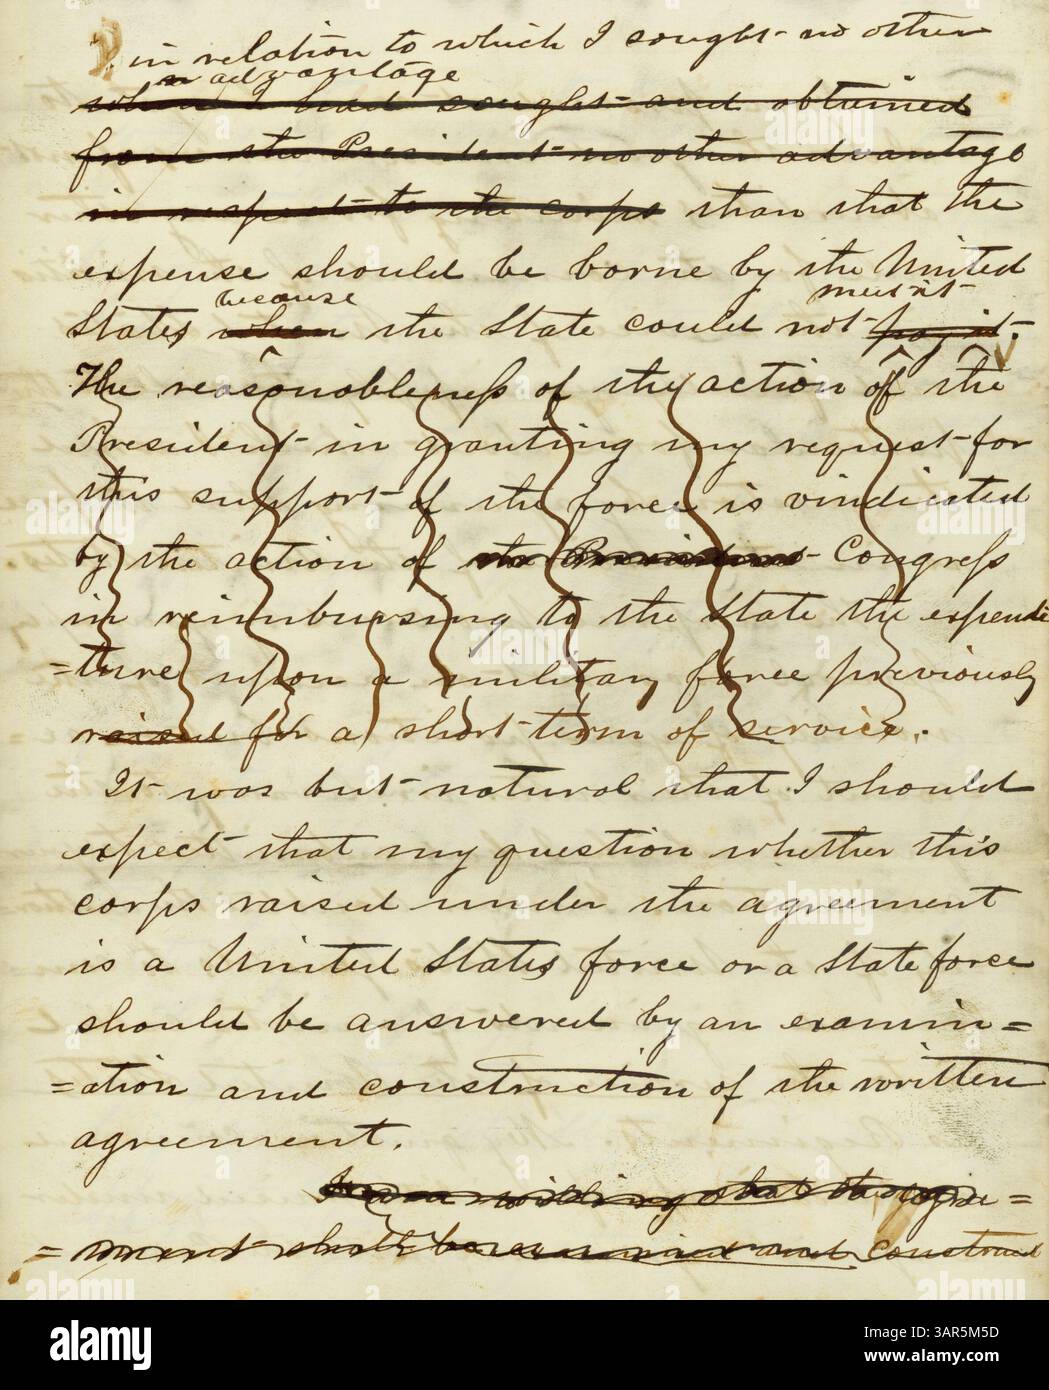 in relation to which I sought no other
advantage
when I had sought and obtained
from the President no other advantage
in respect to the corps than that the
expense should be borne by the United
because meet it
States when the State could not pay it.
The reasonableness of the action of the
President in granting my request for
this support of the force is vindicated
by the action of the President Congress
in reimbursing to the State the expendi
=ture upon a military force previously
raised for a short term of service.
It was but natural that I should
expect that my question whether this
corps raised under the agreement
is a United States force or a State force
should be answered by an examin=
=ation and construction of the written
agreement.
I am willing that the agree=
=ment shall be examined and construed
alamy
Image ID: 3AR5M5D
www.alamy.com